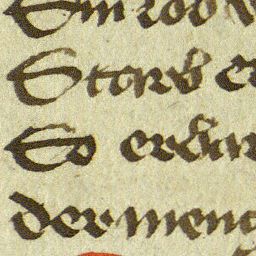 Sin tod
Starb er
So erbar
der meng